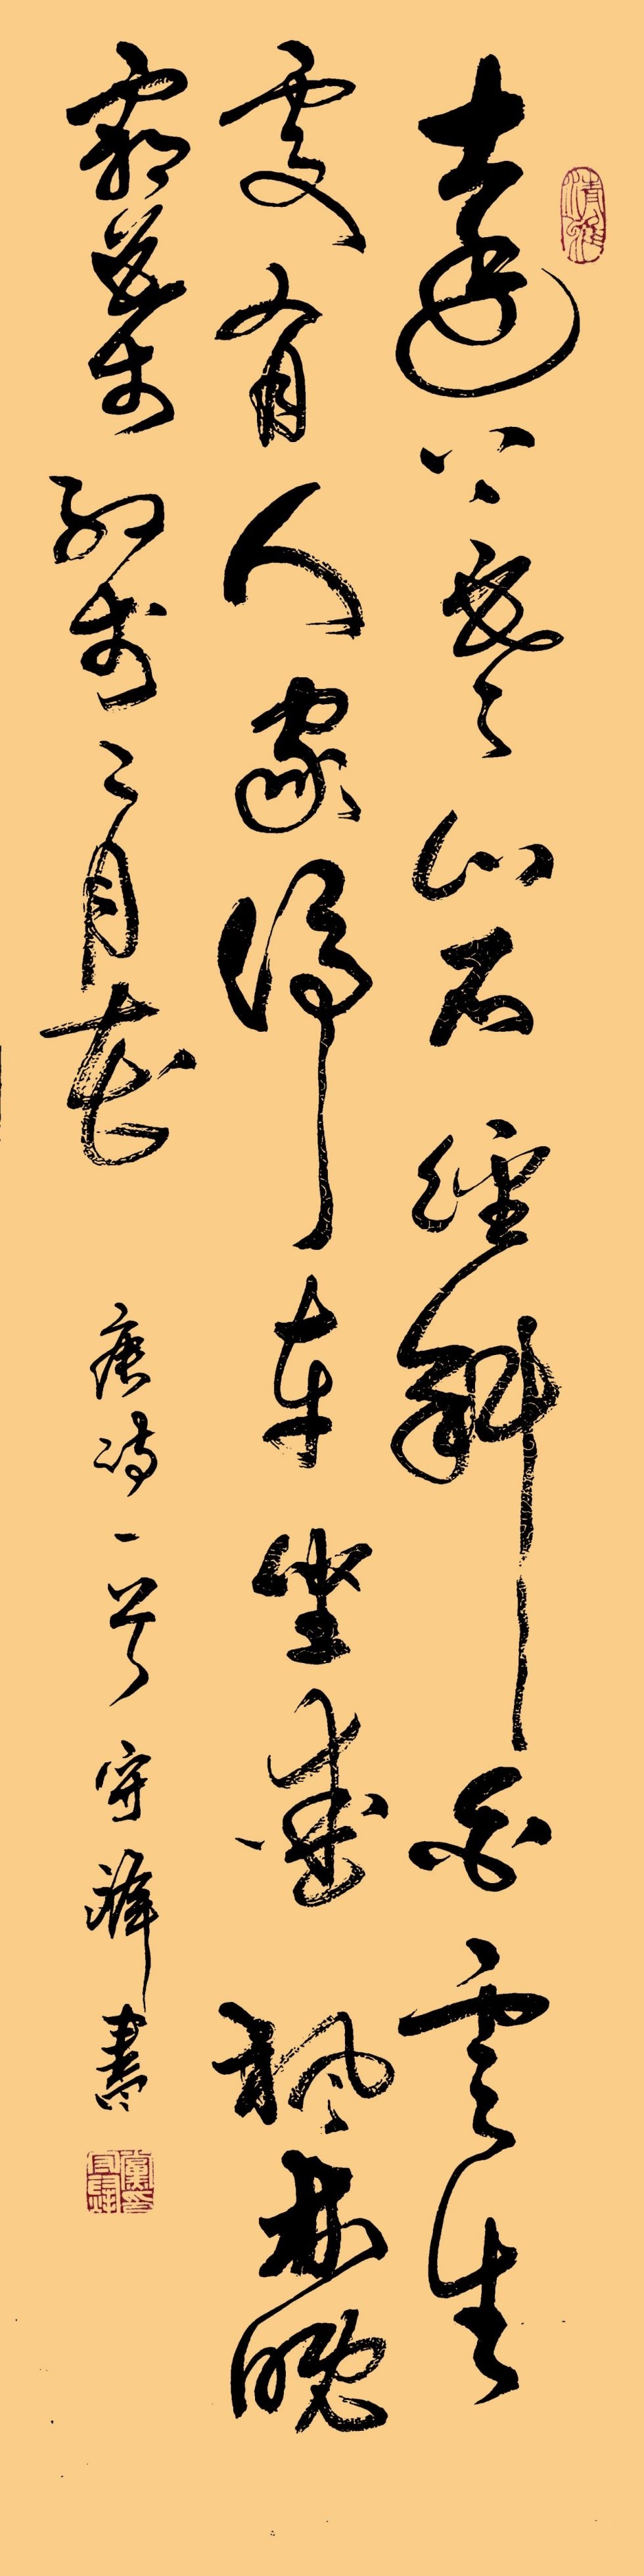 清雅
遠上寒山石徑斜白雲生
處有人家停車坐愛楓林晚
霜葉紅於二月花 唐詩一首 守書